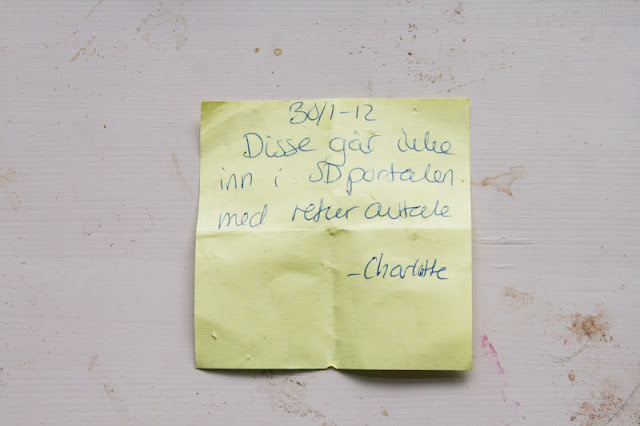 30/1-12
Disse går ikke
inn i SDportalen.
med retur avtale
- Charlotte